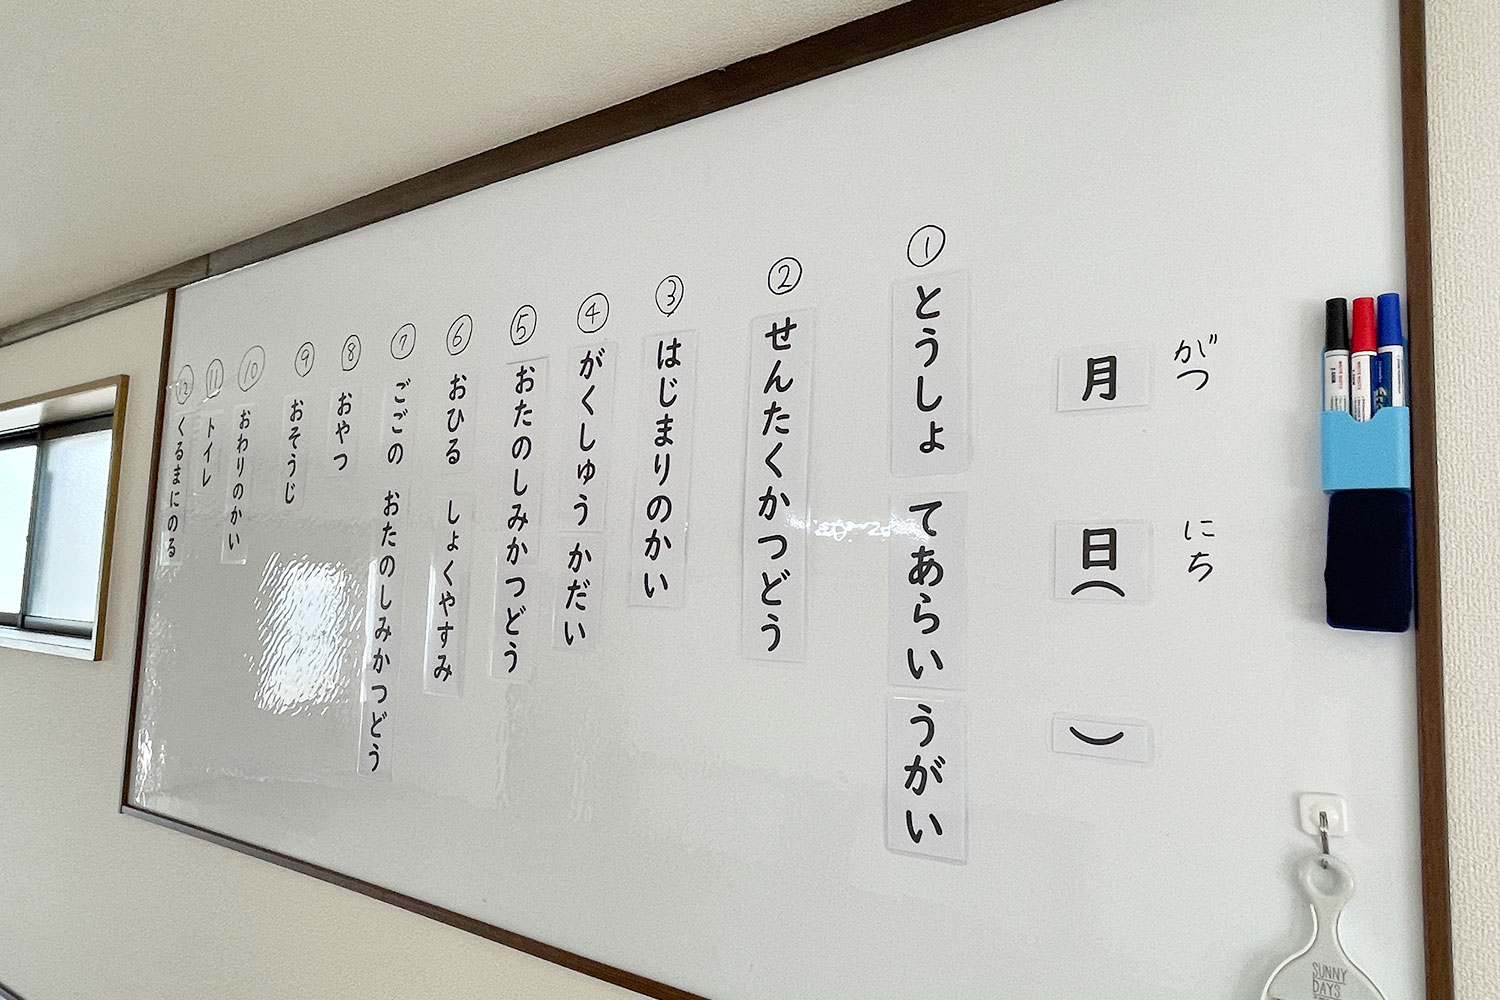 がつ
にち
月
日（
）
① とうしょ てあらい うがい
② せんたくかつどう
③ はじまりのかい
④ がくしゅう かだい
⑤ おたのしみかつどう
⑥ おひる しょくやすみ
⑦ ごごの おたのしみかつどう
⑧ おやつ
⑨ おそうじ
⑩ おわりのかい
⑪ トイレ
⑫ くるまにのる
SUNNY
DAYS